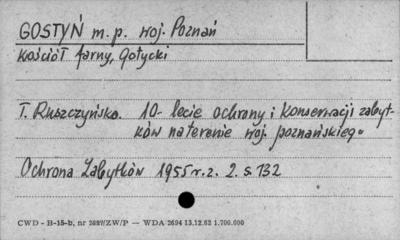 GOSTYŃ m.p. woj. Poznań
kościół farny, gotycki
T. Ruszczyńska. 10-lecie ochrony i konserwacji zabyt-
ków na terenie woj. poznańskiego
Ochrona Zabytków 1955 r. z. 2. s. 132
CWD - B-15-b, nr 3887/ZW/P — WDA 2694 13.12.62 1.700.000